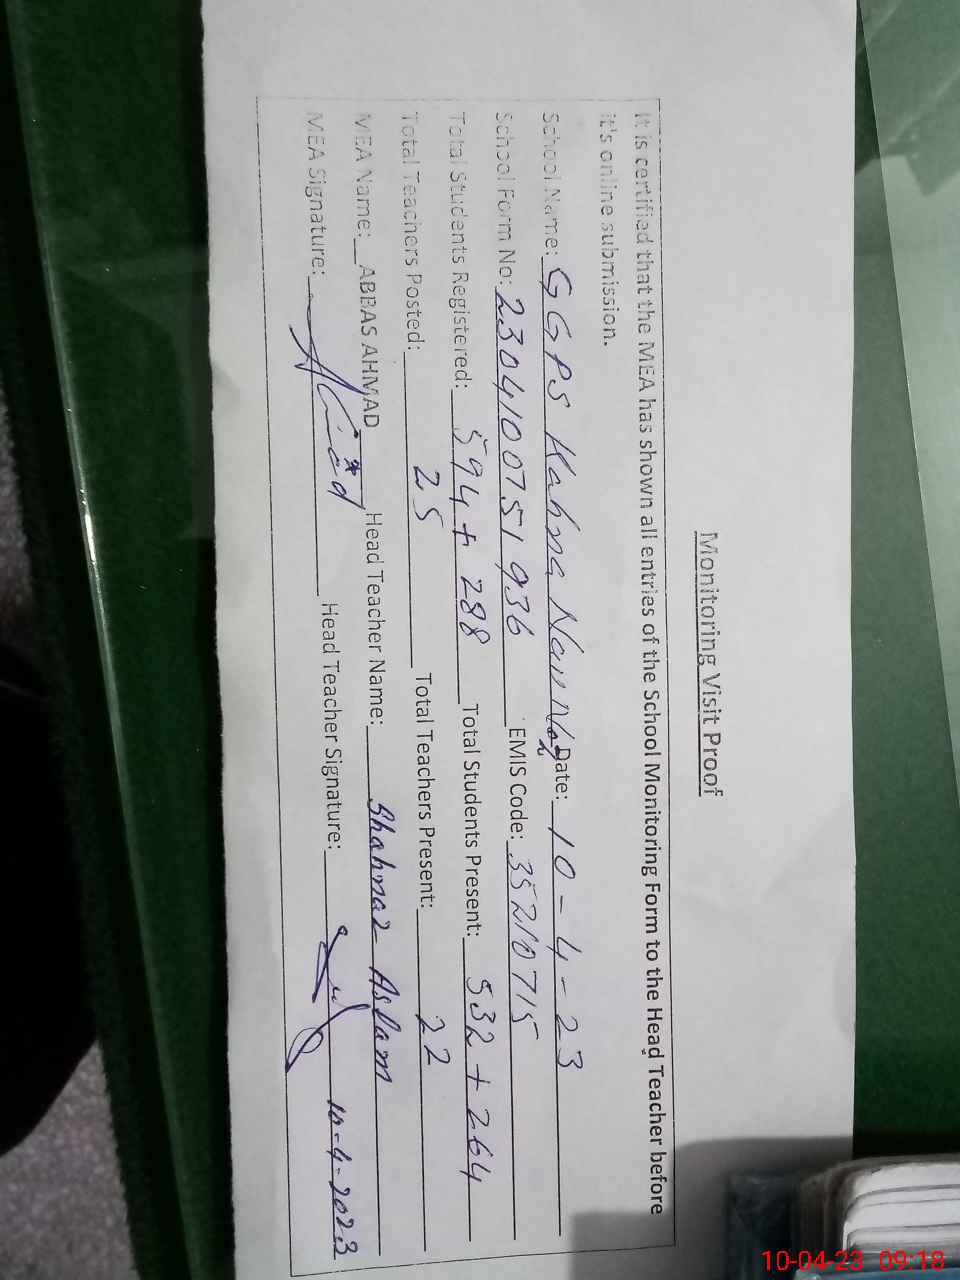 Monitoring Visit Proof
It is certified that the MEA has shown all entries of the School Monitoring Form to the Head Teacher before
it's online submission.
School Name: GGPS Kahna Nau No2 Date: 10-4-23
School Form No: 2304100751936 EMIS Code: 35210715
Total Students Registered: 594 + 288 Total Students Present: 532 + 264
Total Teachers Posted: 25 Total Teachers Present: 22
MEA Name: ABBAS AHMAD Head Teacher Name: Shahnaz Aslam
MEA Signature: Head Teacher Signature: 10-4-2023
10-04-23 09:18